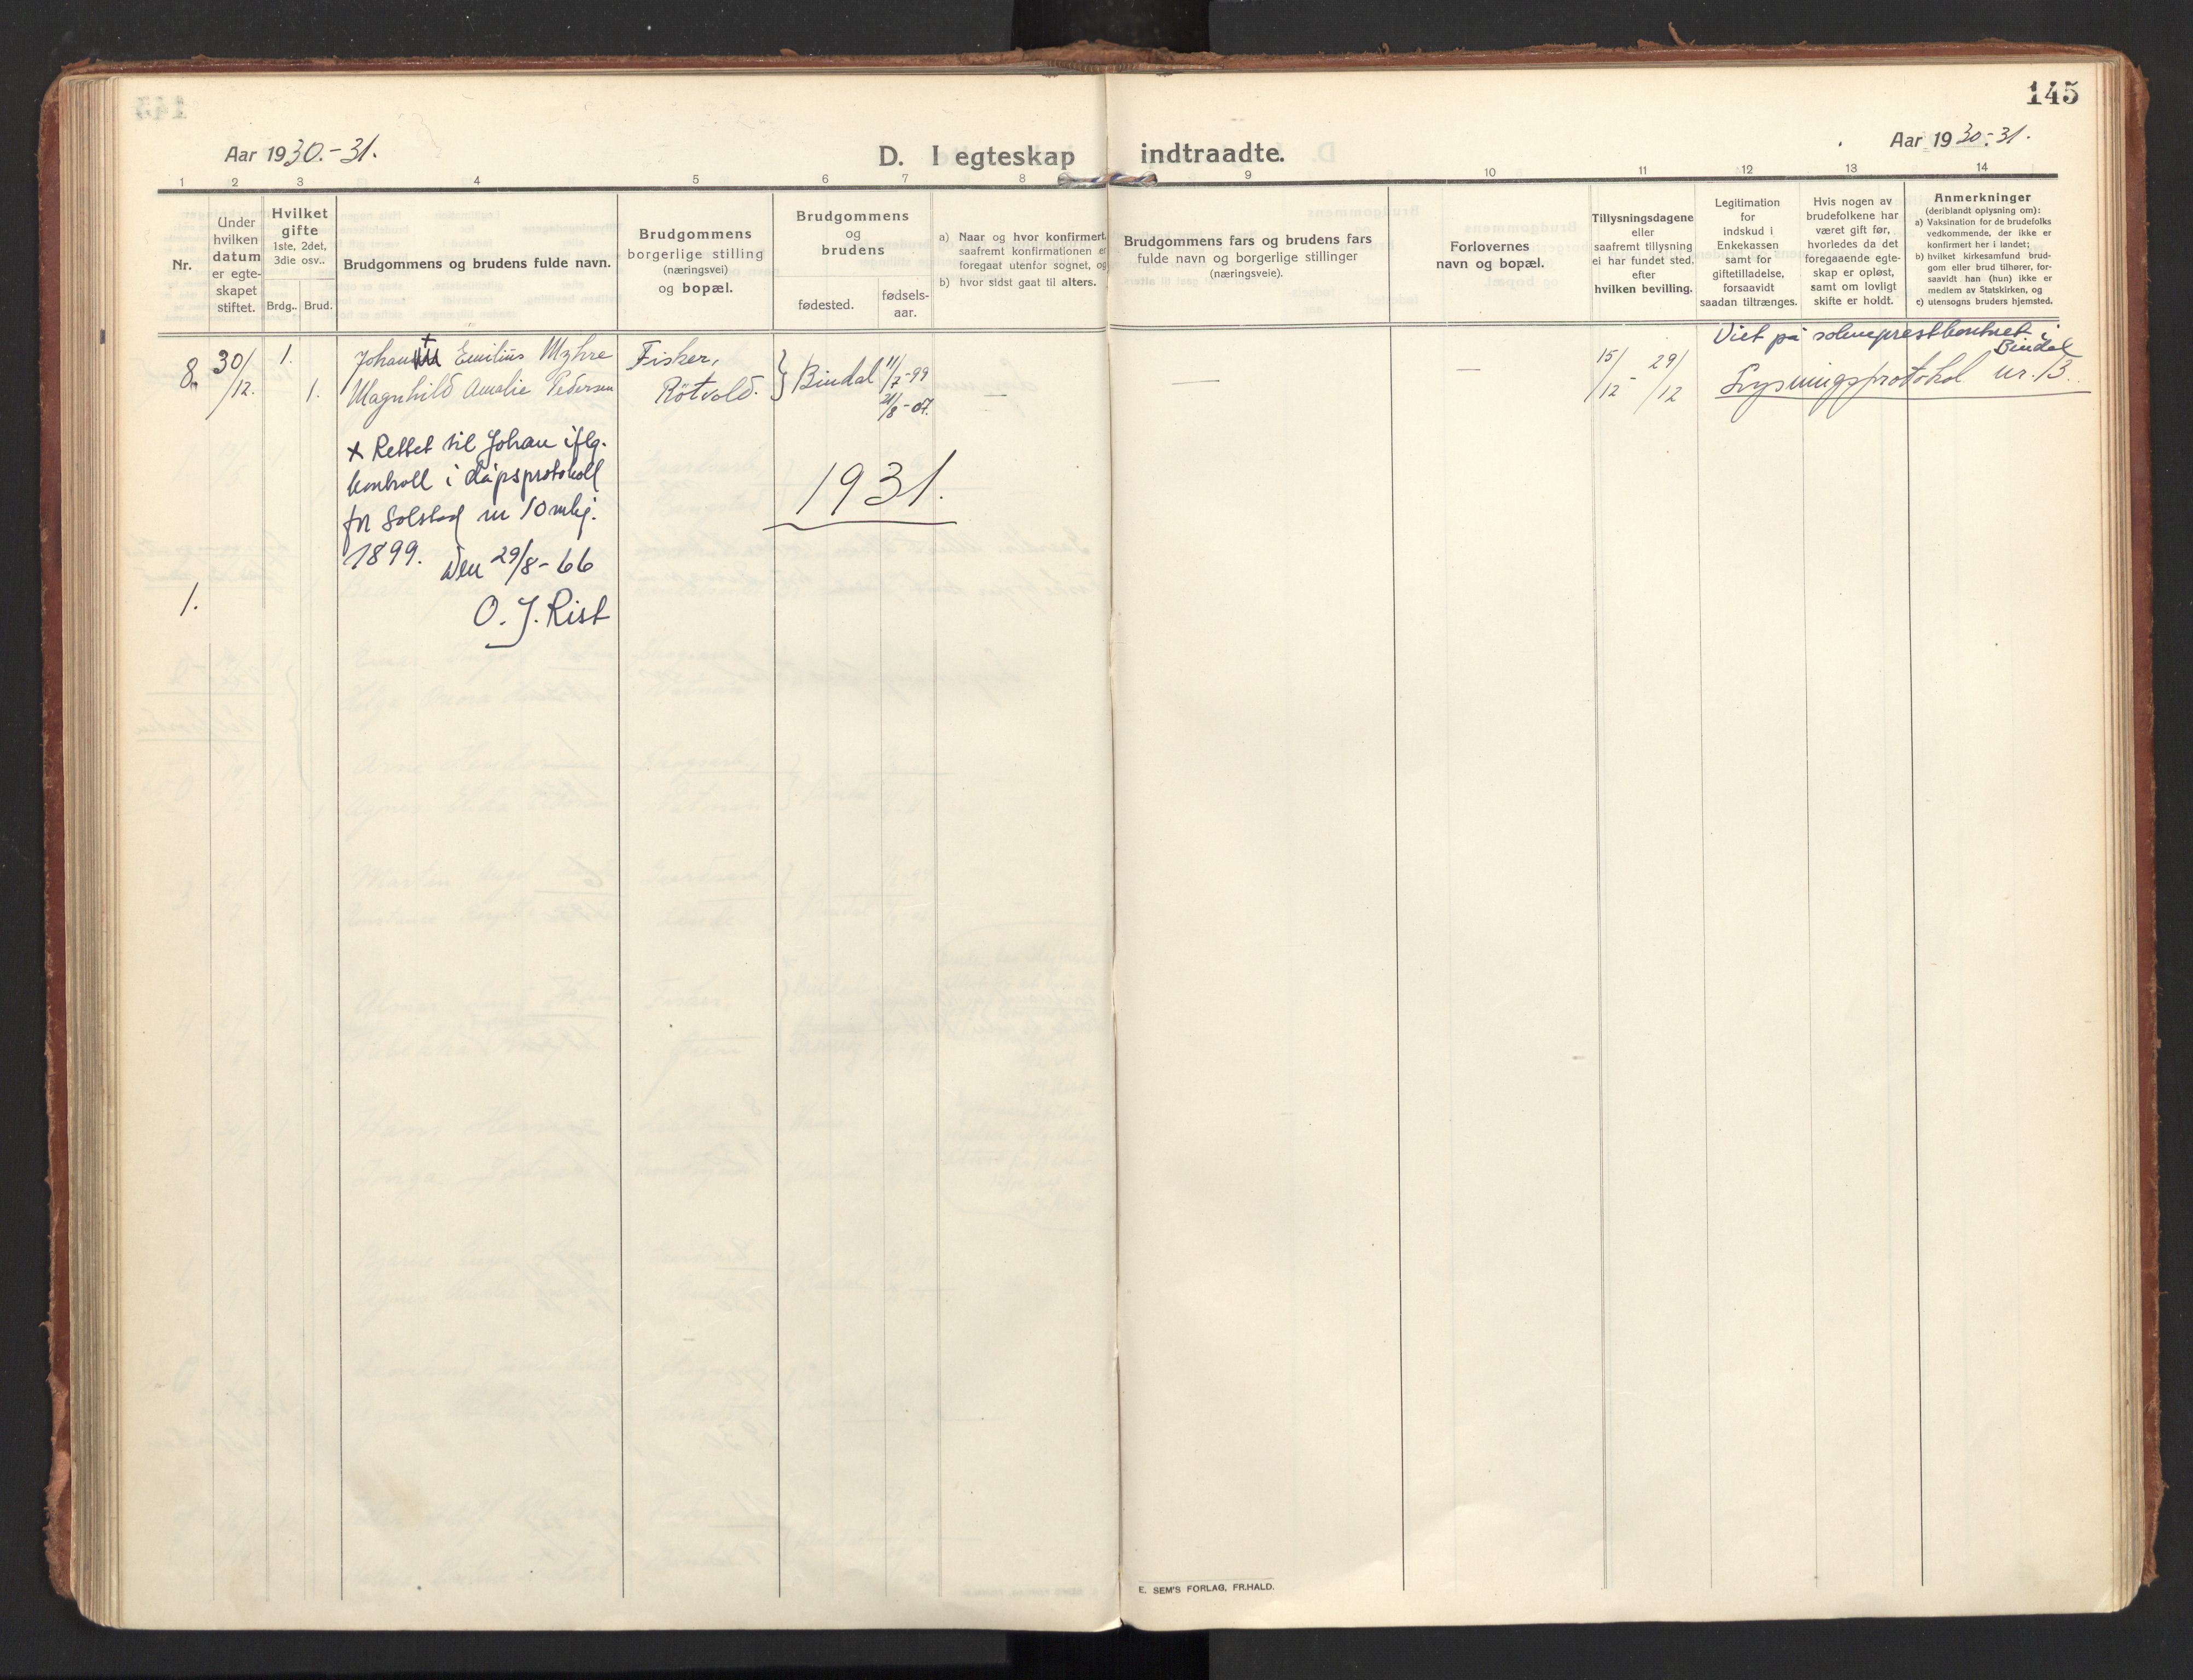 145
Aar 1930.-31.
D. I egteskap indtraadte.
Aar 1930.-31.
1 2 3 4 5 6 7 8 9 10 11 12 13 14
Nr.
Under
hvilken
datum
er egte-
skapet
stiftet.
Hvilket
gifte
1ste, 2det,
3die osv..
Brdg.. Brud.
Brudgommens og brudens fulde navn.
Brudgommens
borgerlige stilling
(næringsvei)
og bopæl.
Brudgommens
og
brudens
fødested.
fødsels-
aar.
a) Naar og hvor konfirmert,
saafremt konfirmationen er
foregaat utenfor sognet, og
b) hvor sidst gaat til alters.
Brudgommens fars og brudens fars
fulde navn og borgerlige stillinger
(næringsveie).
Forlovernes
navn og bopæl.
Tillysningsdagene
eller
saafremt tillysning
ei har fundet sted.
efter
hvilken bevilling.
Legitimation
for
indskud i
Enkekassen
samt for
giftetilladelse,
forsaavidt
saadan tiltrænges.
Hvis nogen av
brudefolkene har
været gift før,
hvorledes da det
foregaaende egte-
skap er opløst,
samt om lovligt
skifte er holdt.
Anmerkninger
(deriblandt oplysning om):
a) Vaksination for de brudefolks
vedkommende, der ikke er
konfirmert her i landet;
b) hvilket kirkesamfund brud-
gom eller brud tilhører, for-
saavidt han (hun) ikke er
medlem av Statskirken, og
c) utensogns bruders hjemsted.
8. 30/12. 1. Johan + Emilius Myhre Fisker, Bindal 11/7-99 — — 15/12 - 29/12
1. Magnhild Amalie Pedersen Røtvold. 21/8-07. —
Viet på sokneprestkontoret i
Bindal
Lysningsprotokol nr. 13.
x Rettet til Johan iflg.
kontroll i dåpsprotokoll
for Solstad nr 10 mkj.
1899. Den 29/8-66
O. J. Rist
1931.
1.
E. SEM'S FORLAG, FR.HALD.